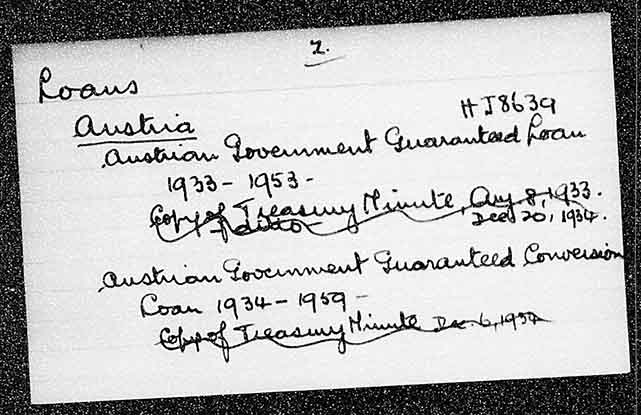 2.
Loans
HJ8639
Austria
Austrian Government Guaranteed Loan
1933 - 1953 -
Copy of Treasury Minute, Aug 8, 1933.
Ditto Dec 20, 1934.
Austrian Government Guaranteed Conversion
Loan 1934 - 1959 -
Copy of Treasury Minute Dec. 6, 1934